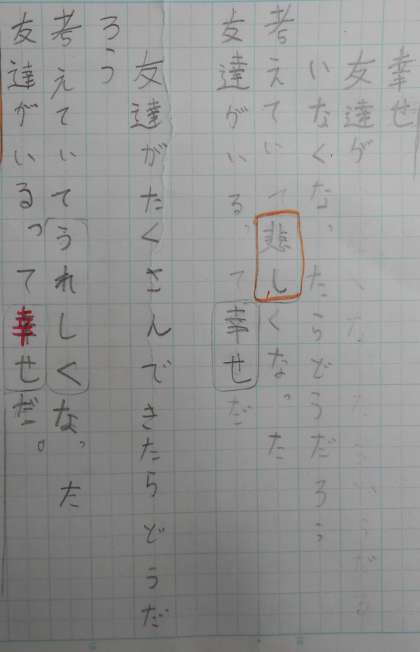 幸せ
友達が
いなくなったらどうだろう
考えていて悲しくなった
友達がいるって幸せだ
友達がたくさんできたらどうだ
ろう
考えていてうれしくなった
友達がいるって幸せだ。